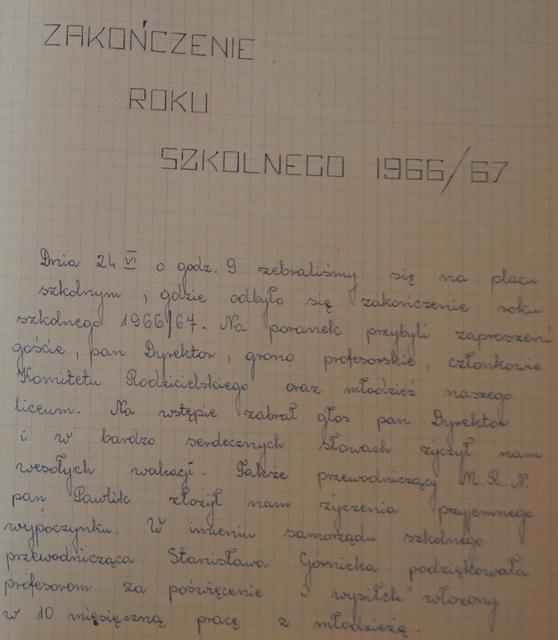 ZAKOŃCZENIE
ROKU
SZKOLNEGO 1966/67
Dnia 24 VI o godz. 9 zebraliśmy się na placu
szkolnym, gdzie odbyło się zakończenie roku
szkolnego 1966/67. Na poranek przybyli zaproszeni
goście, pan Dyrektor, grono profesorskie, członkowie
Komitetu Rodzicielskiego oraz młodzież naszego
liceum. Na wstępie zabrał głos pan Dyrektor
i w bardzo serdecznych słowach życzył nam
wesołych wakacji. Także przewodniczący M.R.N.
pan Pawlik złożył nam życzenia przyjemnego
wypoczynku. W imieniu samorządu szkolnego
przewodnicząca Stanisława Górnicka podziękowała
profesorom za poświęcenie i wysiłek włożony
w 10 miesięczną pracę z młodzieżą.